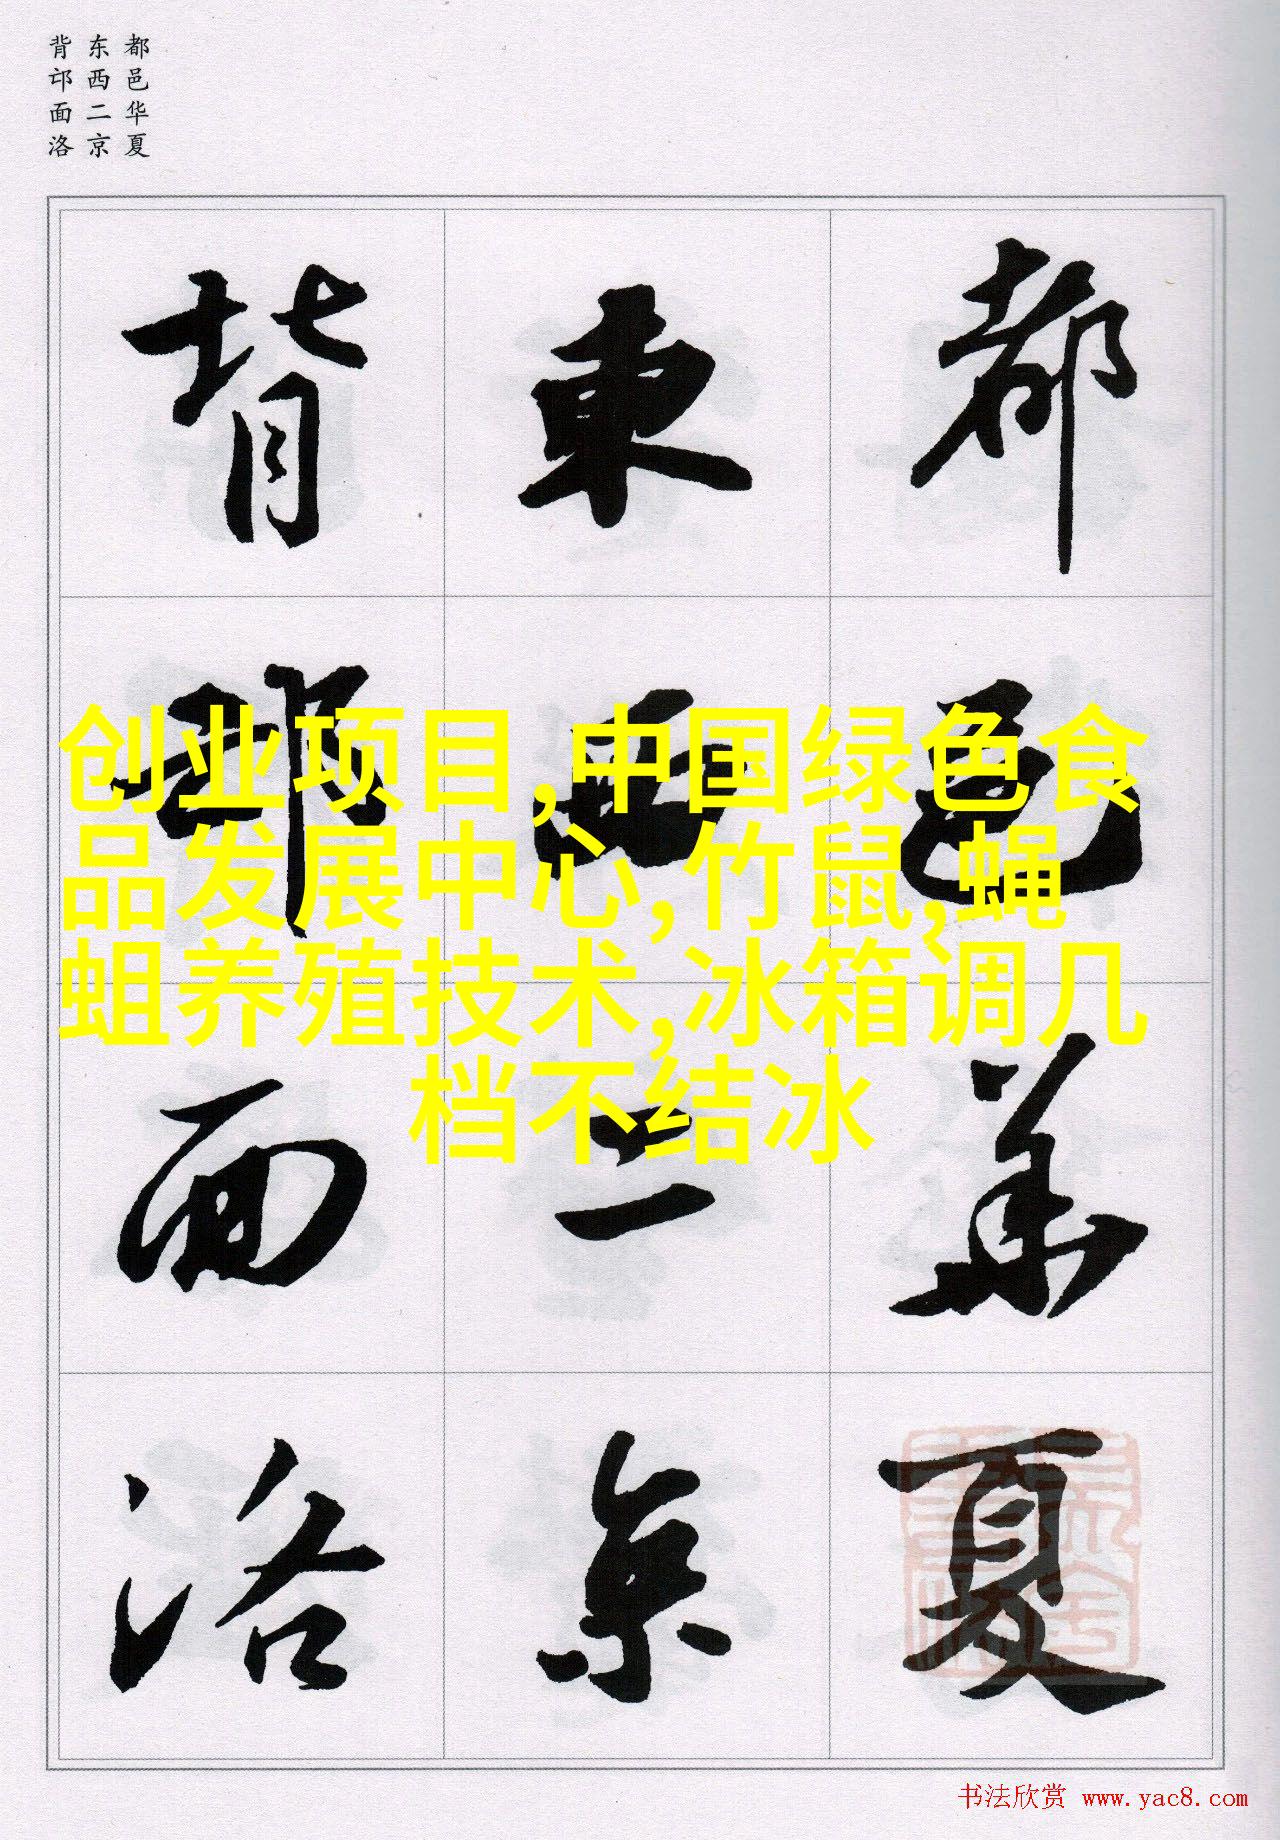 都邑华夏
东西二京
背邙面洛
都邑華夏
東西二京
背邙面洛
创业项目,中国绿色食
品发展中心,竹鼠,蝇
蛆养殖技术,冰箱调几
档不结冰
书法欣赏 www.yac8.com